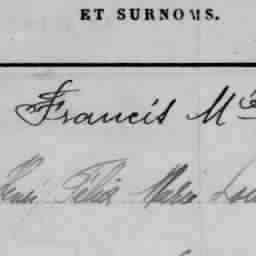 ET SURNOMS.
Francis M
Félix Marie